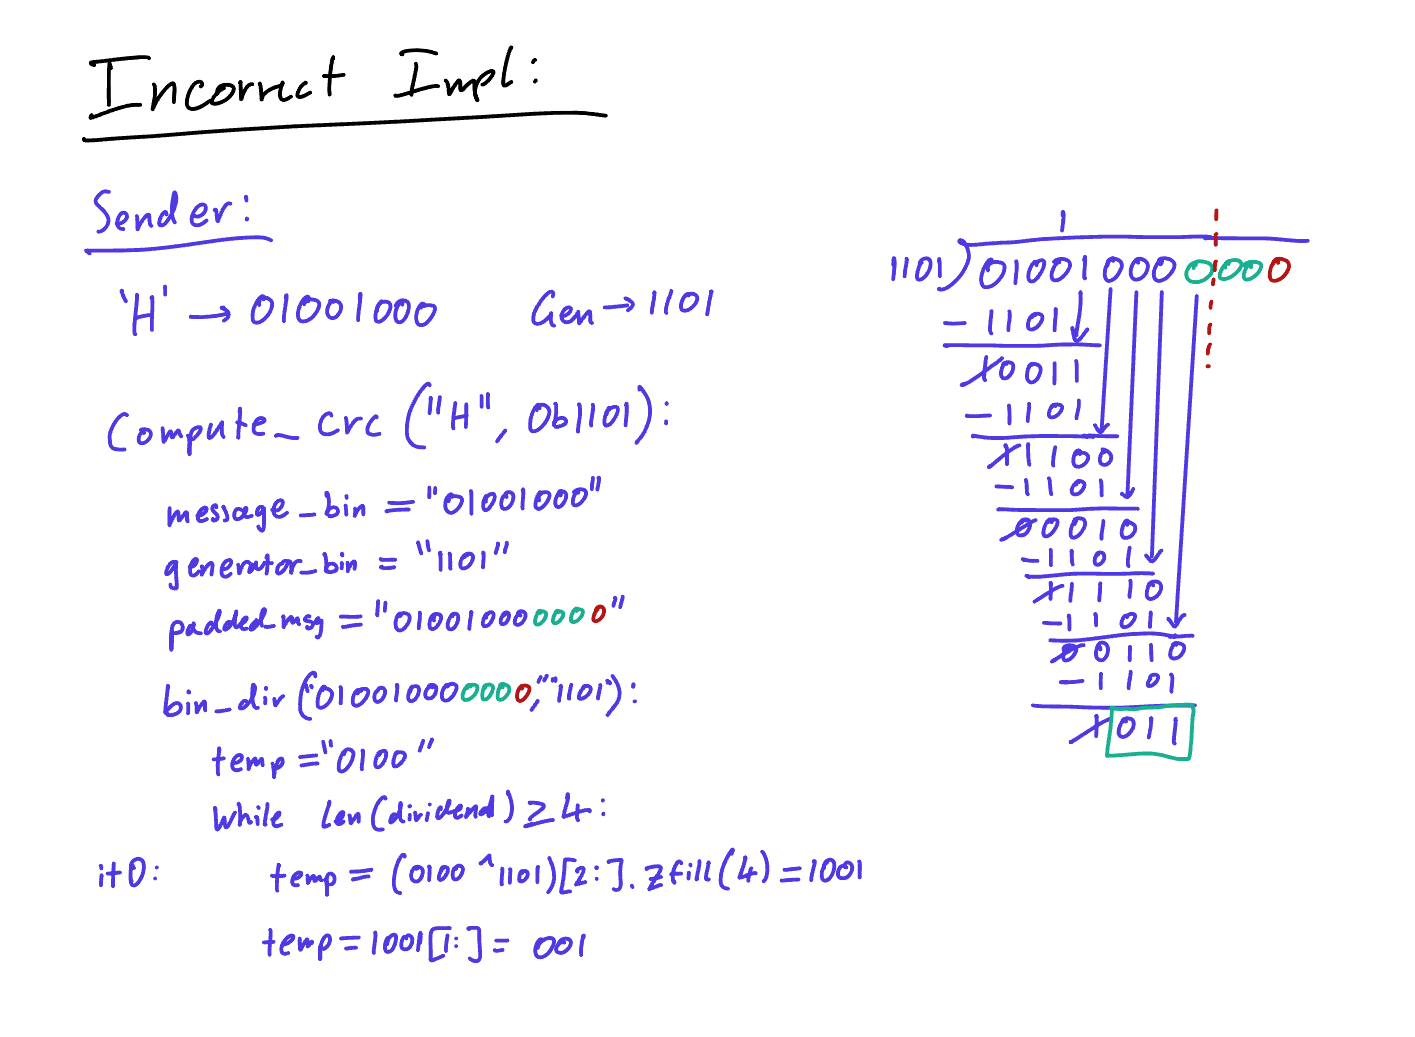 Incorrect Impl:
Sender:
'H' → 01001000 Gen → 1101
Compute_crc ("H", 0b1101):
message_bin = "01001000"
generator_bin = "1101"
padded_msg = "010010000000"
bin_dir ("010010000000", "1101"):
temp = "0100"
While len(dividend) ≥ 4:
it0: temp = (0100 ^ 1101)[2:].zfill(4) = 1001
temp = 1001[1:] = 001
1
1101)010010000000
- 1101
10011
- 1101
11100
- 1101
00010
- 1101
11110
- 1101
00110
- 1101
1011